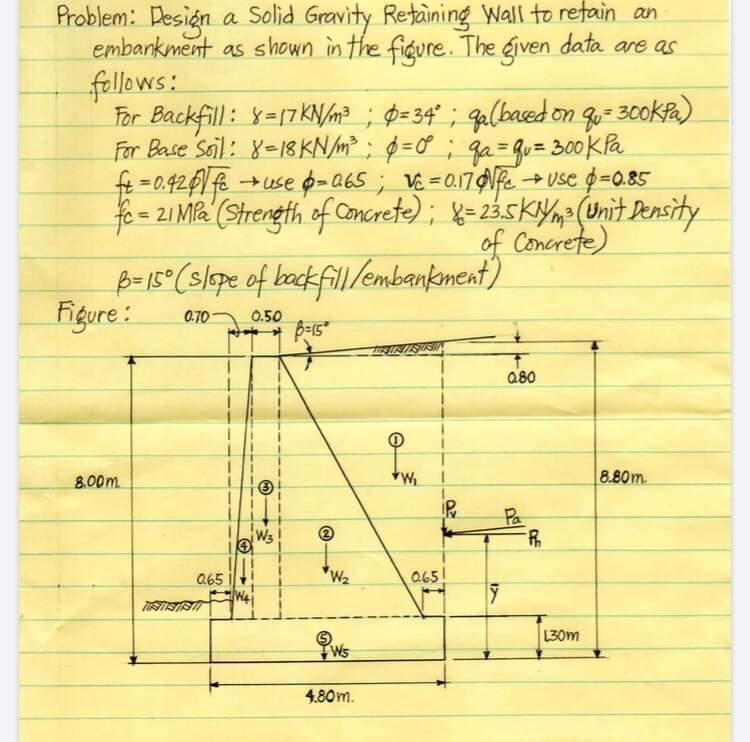 Problem: Design a Solid Gravity Retaining Wall to retain an
embankment as shown in the figure. The given data are as
follows:
For Backfill: γ=17KN/m³ ; ϕ=34° ; qa(based on qu=300kPa)
For Base Soil: γ=18KN/m³ ; ϕ=0° ; qa=qu=300KPa
ft=0.42ϕ√fc → use ϕ=0.65 ; vc=0.17ϕ√fc → use ϕ=0.85
fc=21MPa (Strength of Concrete) ; γc=23.5KN/m³ (Unit Density
of Concrete)
β=15° (slope of backfill/embankment)
Figure:
0.70 0.50
β=15°
0.80
①
W₁
8.00m.
8.80m.
③
W₃
Pv
Pa
Ph
②
W₂
④
W₄
0.65
0.65
ȳ
1.30m
⑤
W₅
4.80m.